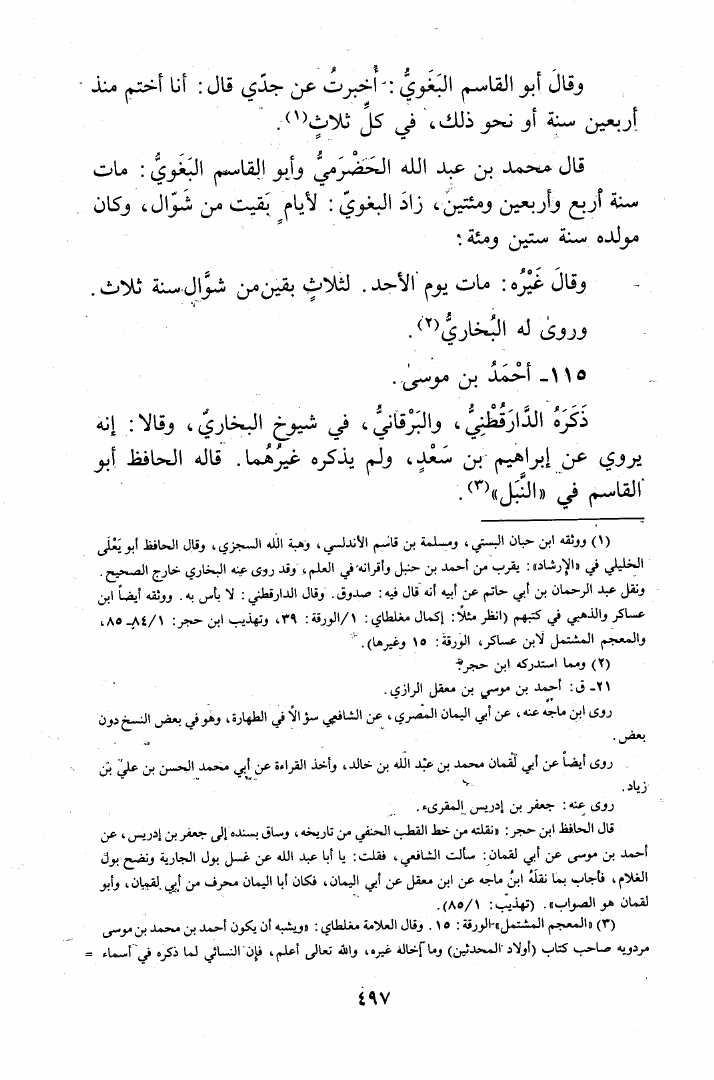 وقالَ أبو القاسم البَغَويُّ: أُخبرتُ عن جدّي قال: أنا أختم منذ
أربعين سنة أو نحو ذلك، في كلِّ ثلاثٍ(١).
قال محمد بن عبد الله الحَضْرَميُّ وأبو القاسم البَغَويُّ: مات
سنة أربع وأربعين ومئتين، زادَ البغويّ: لأيامٍ بَقيت من شَوّال، وكان
مولده سنة ستين ومئة؛
وقالَ غَيْرُه: مات يوم الأحد. لثلاثٍ بقين من شوَّال سنة ثلاث.
وروىٰ له البُخاريُّ(٢).
١١٥ـ أحْمَدُ بن موسىٰ.
ذَكَرَهُ الدَّارَقُطْنِيُّ، والبَرْقانيُّ، في شيوخ البخاريّ، وقالا: إنه
يروي عن إبراهيم بن سَعْدٍ، ولم يذكره غيرُهُما. قاله الحافظ أبو
القاسم في «النَّبَل»(٣).
(١) ووثقه ابن حبان البستي، ومسلمة بن قاسم الأندلسي، وهبة الله السجزي، وقال الحافظ أبو يَعْلَى
الخليلي في «الإرشاد»: يقرب من أحمد بن حنبل وأقرانه في العلم، وقد روى عنه البخاري خارج الصحيح.
ونقل عبد الرحمان بن أبي حاتم عن أبيه أنه قال فيه: صدوق. وقال الدارقطني: لا بأس به. ووثقه أيضاً ابن
عساكر والذهبي في كتبهم (انظر مثلاً: إكمال مغلطاي: ١/الورقة: ٣٩، وتهذيب ابن حجر: ١/٨٤ـ٨٥،
والمعجم المشتمل لابن عساكر، الورقة: ١٥ وغيرها).
(٢) ومما استدركه ابن حجر:
٢١ـ ق: أحمد بن موسى بن معقل الرازي.
روى ابن ماجه عنه، عن أبي اليمان المصري، عن الشافعي سؤالاً في الطهارة، وهو في بعض النسخ دون
بعض.
روى أيضاً عن أبي لقمان محمد بن عبد الله بن خالد، وأخذ القراءة عن أبي محمد الحسن بن علي بن
زياد.
روى عنه: جعفر بن إدريس المقرىء.
قال الحافظ ابن حجر: «نقلته من خط القطب الحنفي من تاريخه، وساق بسنده إلى جعفر بن إدريس، عن
أحمد بن موسى عن أبي لقمان: سألت الشافعي، فقلت: يا أبا عبد الله عن غسل بول الجارية ونضح بول
الغلام، فأجاب بما نقلَهُ ابنُ ماجه عن ابن معقل عن أبي اليمان، فكان أبا اليمان محرف من أبي لقمان، وأبو
لقمان هو الصواب». (تهذيب: ١/٨٥).
(٣) «المعجم المشتمل» الورقة: ١٥. وقال العلامة مغلطاي: «ويشبه أن يكون أحمد بن محمد بن موسى
مردويه صاحب كتاب (أولاد المحدثين) وما إخاله غيره، والله تعالى أعلم، فإن النسائي لما ذكره في أسماء =
٤٩٧